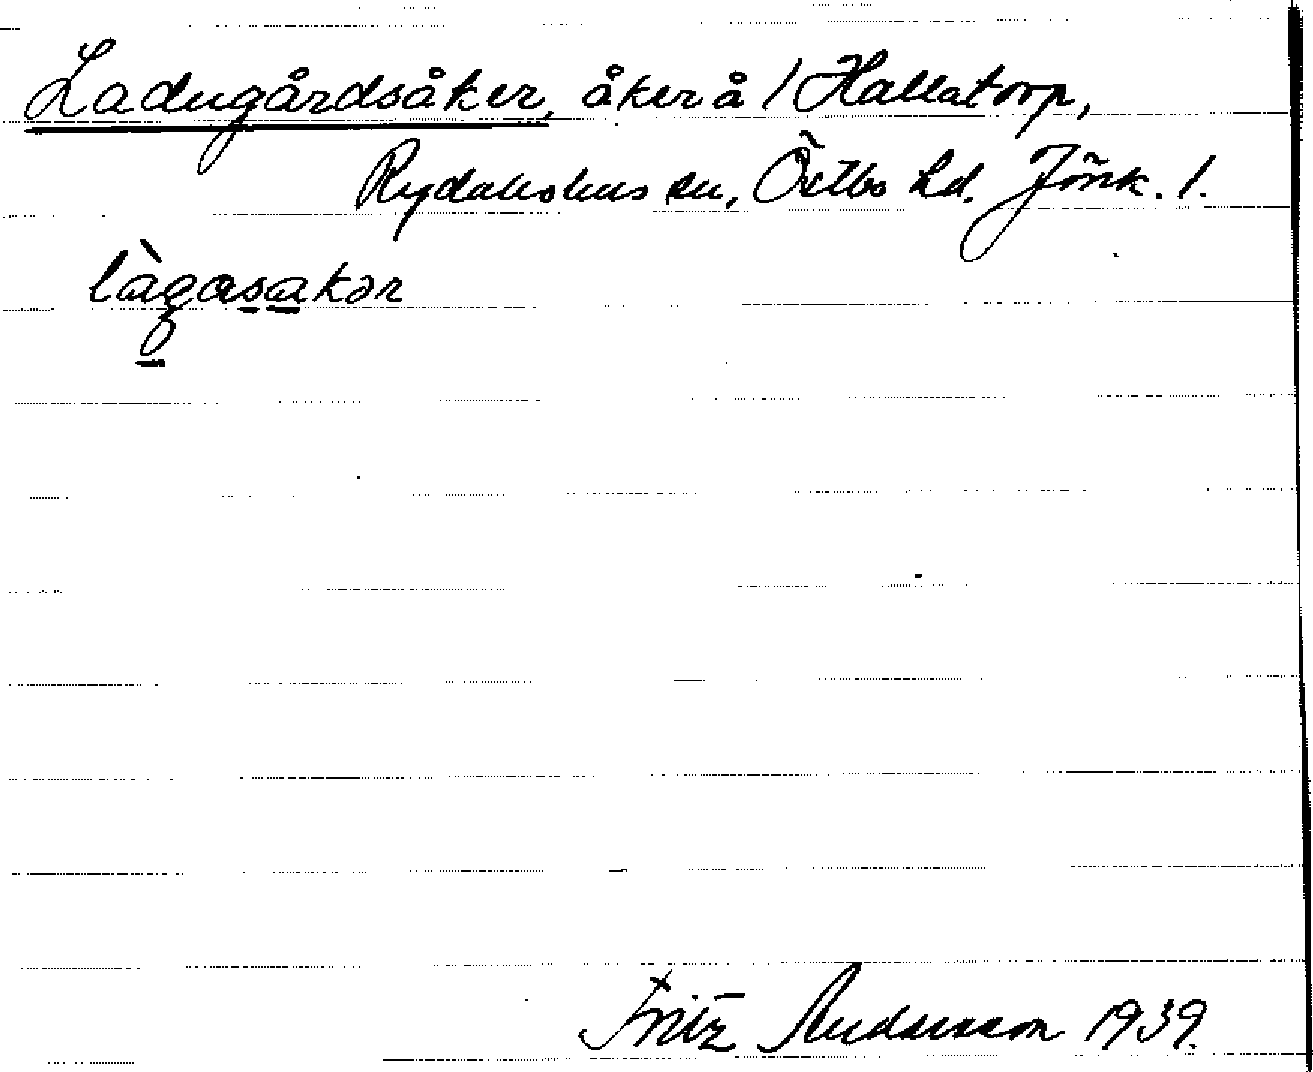 Ladugårdsåker, åker å 1 Hallatorp,
Rydaholms sn, Östbo hd. Jönk. l.
làgasakər
Fritz Andersson 1939.